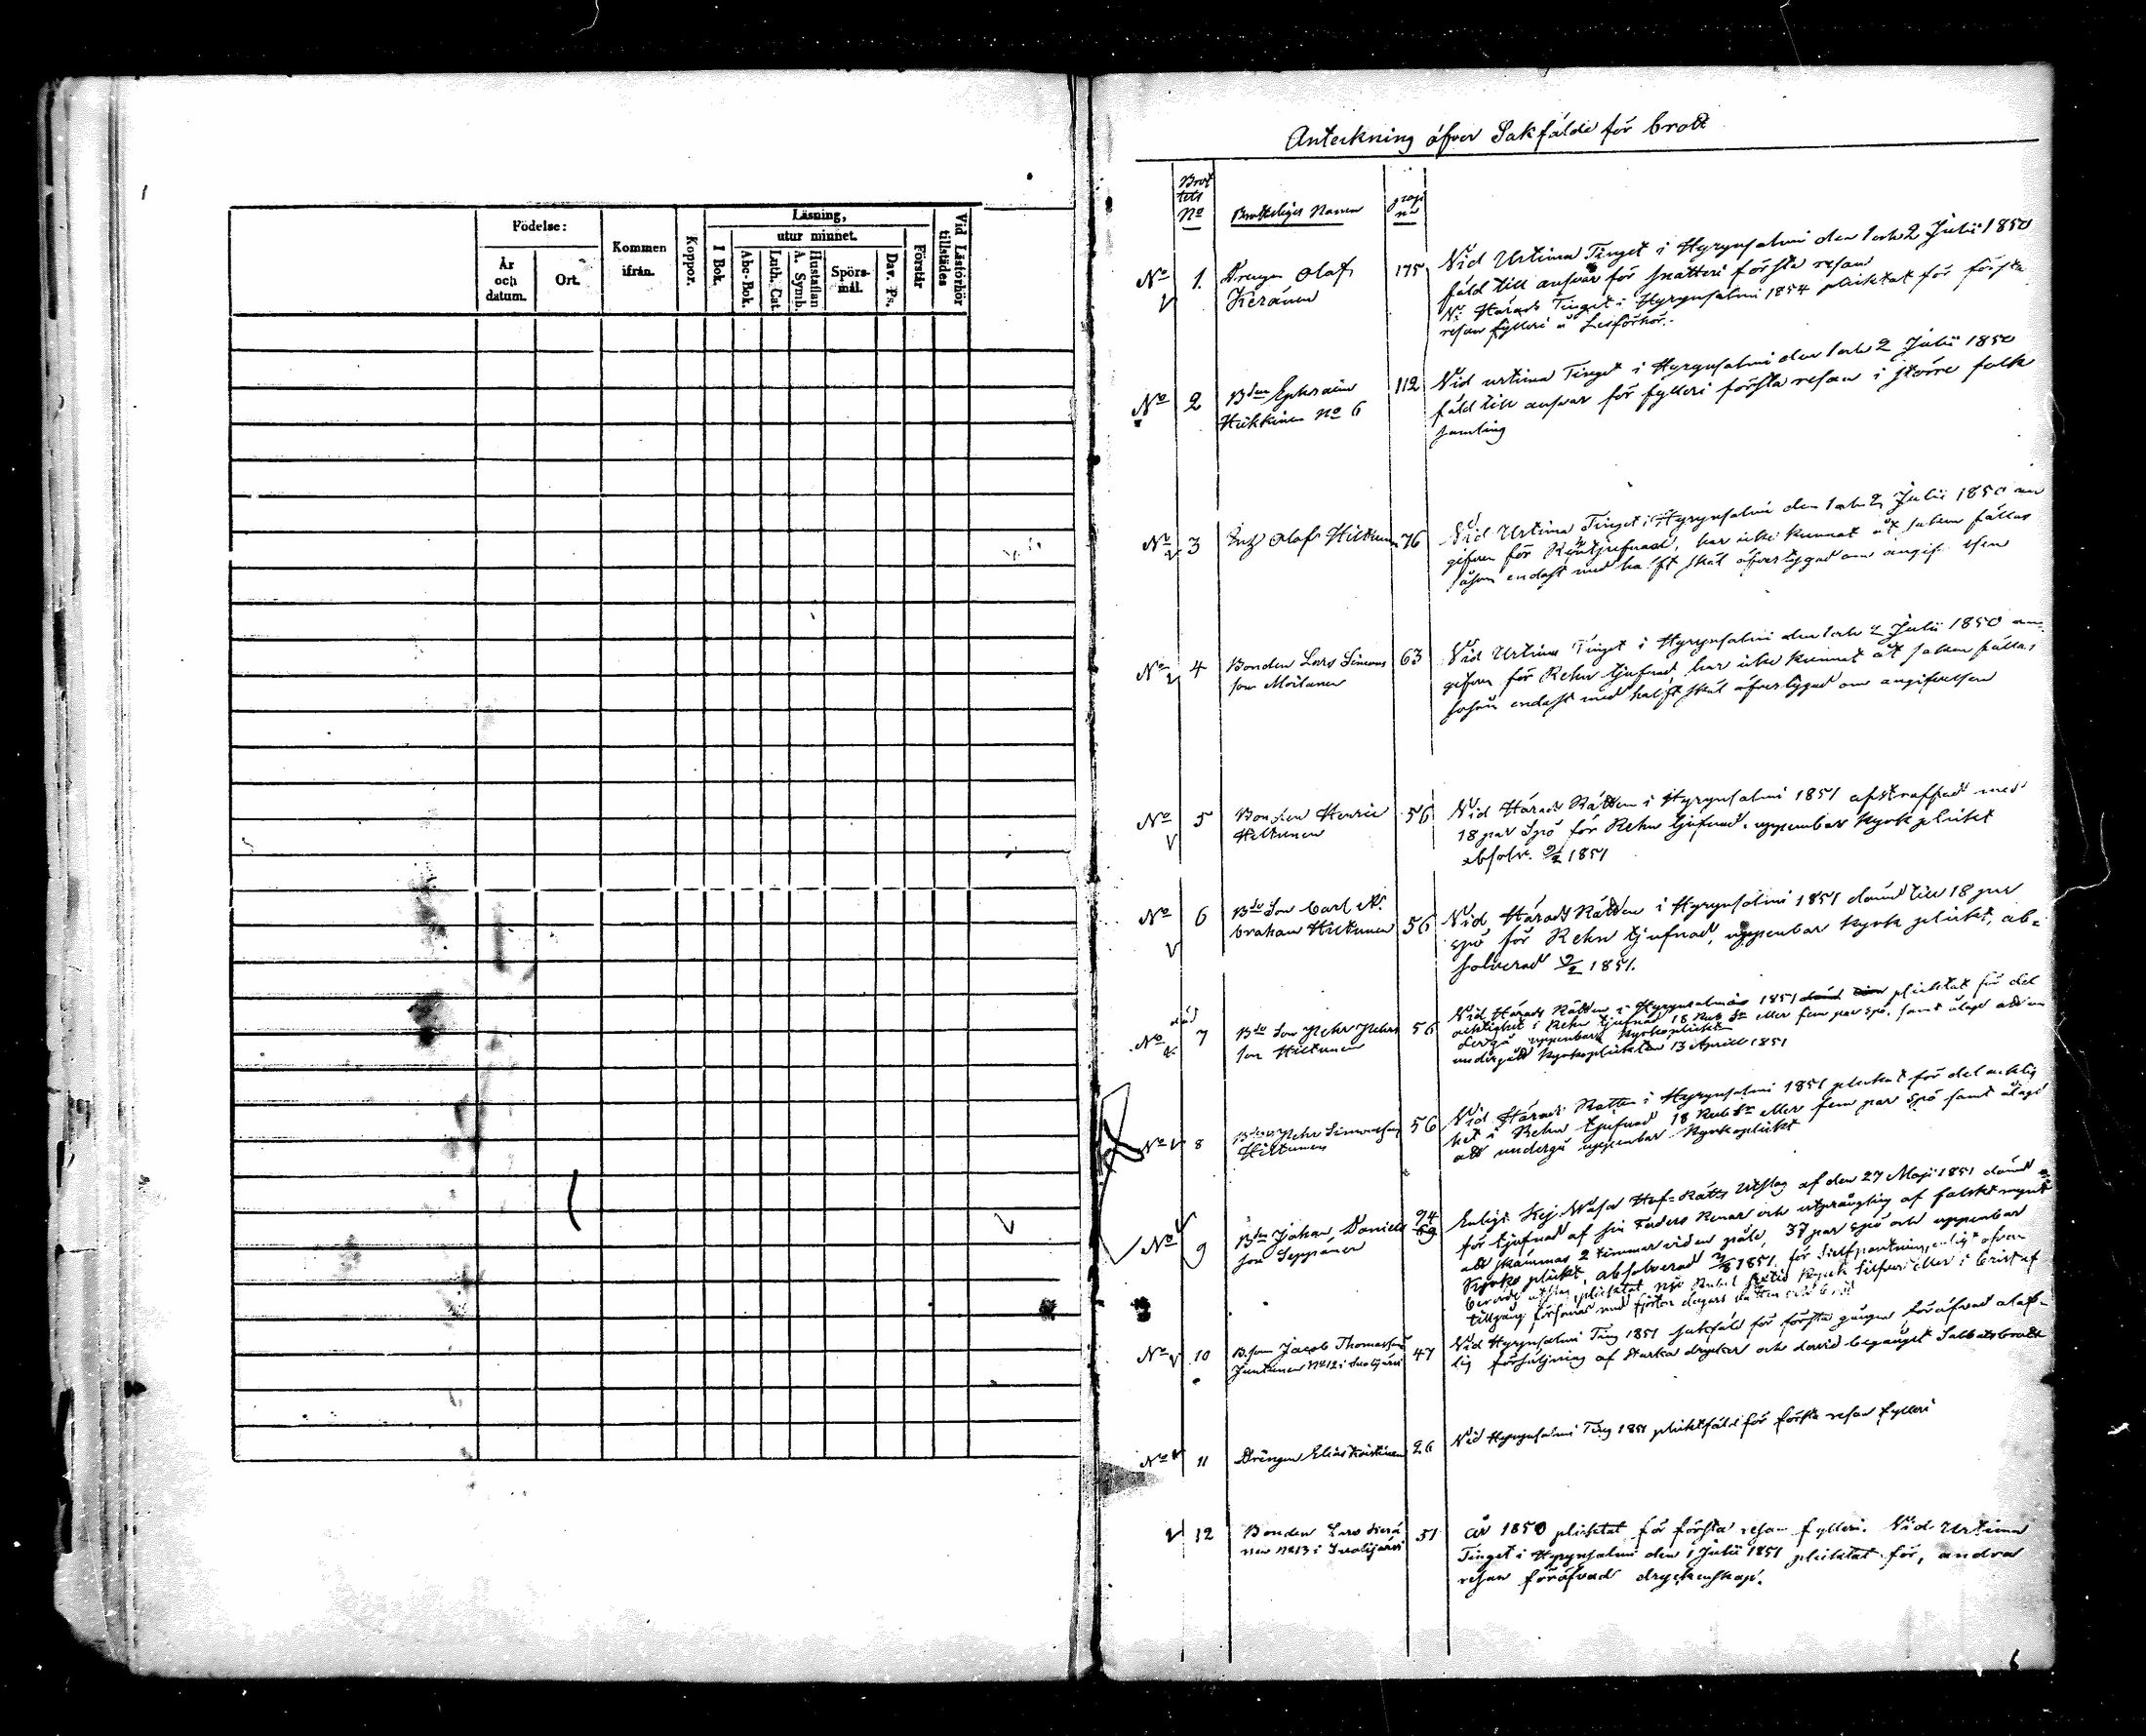 Födelse:
År
och
datum.
Ort.
Kommen
ifrån.
Koppor.
Läsning,
I Bok.
utur minnet.
Abc-Bok.
Luth. Cat.
Hustaflan
A. Symb.
Spörs-
mål.
Dav. Ps.
Förstår
Vid Läsförhör
tillstädes
Anteckning öfver Sakfälde för brott
Brot
tets
No
Brottsliges Namn
pagi
na
No 1. Drengen Olof
Keränen
175
Vid Urtima Tinget i Hyrynsalmi den 1 och 2 Julii 1850
fäld till ansvar för snatteri första resan
Vid Härads Tinget i Hyrynsalmi 1854 pliktat för första
resan fylleri å Läsförhör.
No 2 Bden Ephraim
Heikkinen No 6
112
Vid urtima Tinget i Hyrynsalmi den 1 och 2 Julii 1850
fäld till ansvar för fylleri första resan i större folk
samling
No 3 Olof Hiltunen 76
Vid Urtima Tinget i Hyrynsalmi den 1 och 2 Julii 1850 an
gifven för Rentjufnad, har icke kunnat åt saken fällas
såsom endast med halft skäl öfvertygad om angifvelsen
No 4 Bonden Lars Simons
son Moilanen
63
Vid Urtima Tinget i Hyrynsalmi den 1 och 2 Julii 1850 an-
gifven för Rehn tjufnad, har icke kunnat åt saken fällas,
såsom endast med halft skäl öfvertygad om angifvelsen
No 5 Bonden Henric
Hiltunen
56
Vid Härads Rätten i Hyrynsalmi 1851 afstraffad med
18 par Spö för Rehn tjufnad, uppenbar Kyrk plickt
absolv. 9/2 1851
No 6 Bde Son Carl A.
braham Hiltunen
56
Vid Härads Rätten i Hyrynsalmi 1851 dömd till 18 par
spö för Rehn tjufnad, uppenbar Kyrk plickt, ab-
solverad 9/2 1851.
död
No 7 Bde Son Pehr Pehrs
son Hiltunen
56
Vid Härads Rätten i Hyrynsalmi 1851 pliktat för del
aktighet i Rehn tjufnad 18 Rub Sr eller fem par spö, samt ålagd att un
dergå uppenbar Kyrkoplickt
undergått Kyrkoplickten 13 April 1851
No 8 Pehr Simonsson
Hiltunen
56
Vid Härads Rätten i Hyrynsalmi 1851 pliktat för delaktig
het i Rehn tjufnad 18 Rub Sr eller fem par spö samt ålagd
att undergå uppenbar Kyrkoplickt
No 9 Bden Johan Daniels
son Seppänen
94
69
Enligt Kej. Wasa Hof-Rätts Utslag af den 27 Maji 1851 dömd
för tjufnad af sin Faders Renar och utprångling af falskt mynt
att skämmas 2 timmar vid en påle, 37 par spö och uppenbar
Kyrko plickt, absolverad 1851. för enligt ofvan
berörde utslag pliktat Rubel Kopek Silfver eller i brist af
tillgång försonas med fjorton dagars vatten och bröd
No 10 B.son Jacob Thomasson
Juntunen No 12 i Suolijärvi
47
Vid Hyrynsalmi Ting 1851 sakfäld för första gången föröfvad olof-
lig försäljning af starka drycker och dervid begånget Sabbatsbrott
No 11 Drängen Elias Koistinen 26
Vid Hyrynsalmi Ting 1851 pliktfäld för första resan fylleri
12 Bonden Lars Kerä
nen No 13 i Suolijärvi
51
År 1850 pliktat för första resan fylleri. Vid Urtima
Tinget i Hyrynsalmi den 1 Julii 1851 pliktat för, andra
resan föröfvad dryckenskap.
6